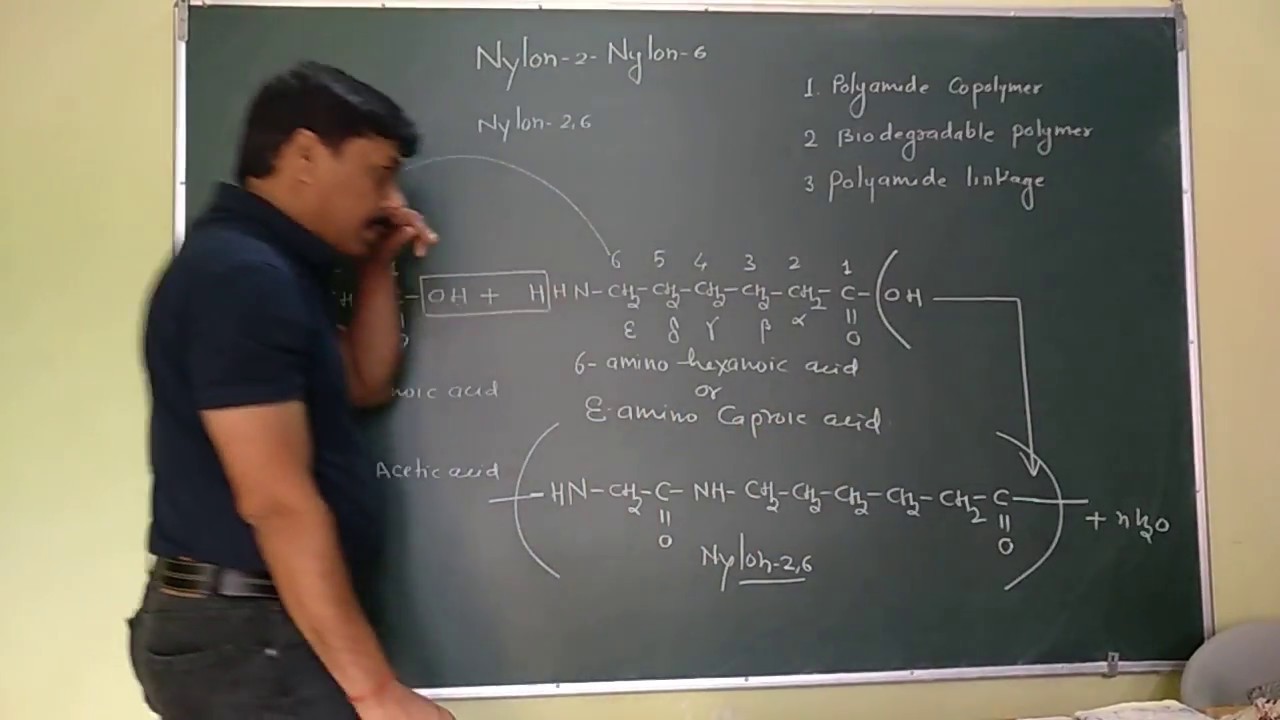 Nylon-2-Nylon-6
Nylon-2,6
1. Polyamide Copolymer
2 Biodegradable polymer
3 Polyamide linkage
6 5 4 3 2 1
OH + H HN-CH2-CH2-CH2-CH2-CH2-C-(OH
ε δ γ β α O
6-amino hexanoic acid
or
noic acid
ε-amino Caproic acid
Acetic acid
-HN-CH2-C-NH-CH2-CH2-CH2-CH2-CH2-C- + nH2O
O O
Nylon-2,6